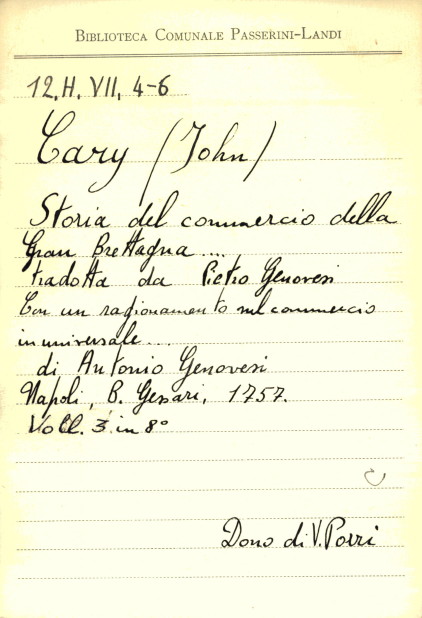 BIBLIOTECA COMUNALE PASSERINI-LANDI
12.H.VII, 4-6
Cary (John)
Storia del commercio della
Gran Brettagna ...
tradotta da Pietro Genovesi
Con un ragionamento sul commercio
in universale ...
di Antonio Genovesi
Napoli, B. Gessari, 1757.
Voll. 3 in 8°
Dono di V. Porri